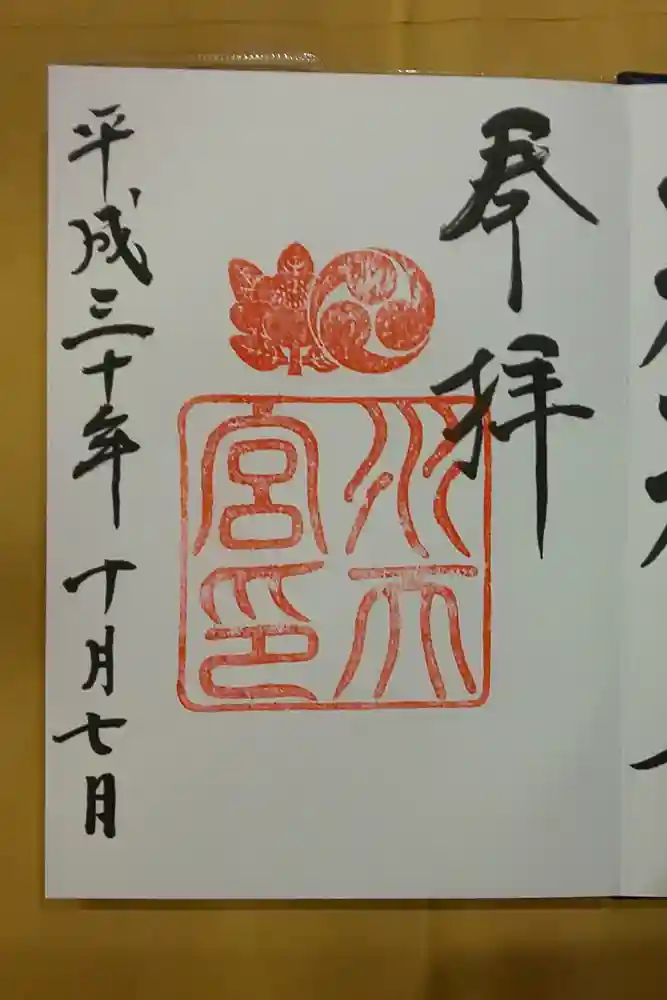 奉拝
水天
宮印
平成三十年十月七日